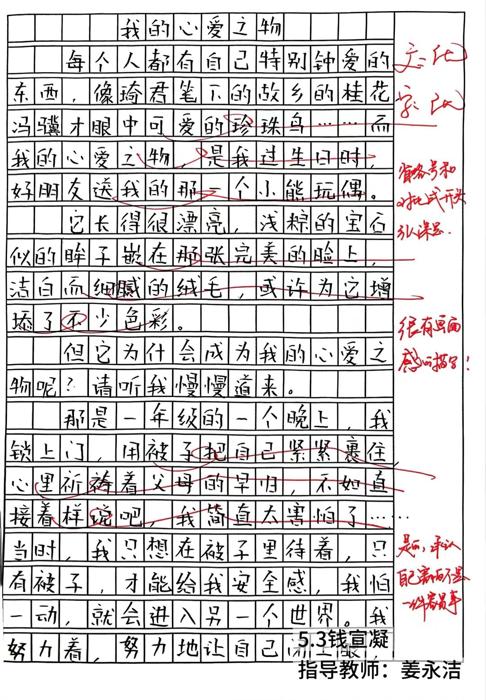 我的心爱之物
每个人都有自己特别钟爱的
东西，像琦君笔下的故乡的桂花
冯骥才眼中可爱的珍珠鸟……而
我的心爱之物，是我过生日时，
好朋友送我的那一个小熊玩偶。
它长得很漂亮，浅粽的宝石
似的眸子嵌在那张完美的脸上，
洁白而细腻的绒毛，或许为它增
添了不少色彩。
但它为什会成为我的心爱之
物呢？请听我慢慢道来。
那是一年级的一个晚上，我
锁上门，用被子把自己紧紧裹住，
心里祈祷着父母的早归，不如直
接着样说吧，我简直太害怕了……
当时，我只想在被子里待着，只
有被子，才能给我安全感，我怕
一动，就会进入另一个世界。我
努力着，努力地让自己
省略号和
对比式开头
很有画面
感的描写！
是的，承认
自己害怕不是
一件容易事
5.3钱宣凝
指导教师：姜永洁